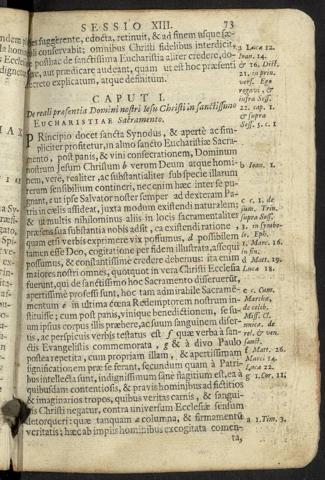 SESSIO XIII. 73
suggerente, edocta, retinuit, & ad finem usque sæ-
culi conservabit; omnibus Christi fidelibus interdicit,
ne posthac de sanctissima Eucharistia aliter credere, do-
cere, aut prædicare audeant, quam ut est hoc præsenti
decreto explicatum, atque definitum.
CAPUT I.
De reali præsentia Domini nostri Iesu Christi in sanctissimo
EUCHARISTIAE Sacramento.
PRincipio docet sancta Synodus, & apertè ac sim-
pliciter profitetur, in almo sanctæ Eucharistiæ Sacra-
mento, post panis, & vini consecrationem, Dominum
nostrum Jesum Christum b verum Deum atque homi-
nem, verè, realiter, ac substantialiter sub specie illarum
rerum sensibilium contineri, nec enim hæc inter se pu-
gnant, c ut ipse Salvator noster semper ad dexteram Pa-
tris in cœlis assideat, juxta modum existendi naturalem;
& ut multis nihilominus aliis in locis sacramentaliter
præsens sua substantia nobis adsit, ea existendi ratione,
quam etsi verbis exprimere vix possumus, d possibilem
tamen esse Deo, cogitatione per fidem illustrata, assequi
possumus, & constantissimè credere debemus: ita enim
majores nostri omnes, quotquot in vera Christi Ecclesia
fuerunt, qui de sanctissimo hoc Sacramento disseruerunt,
apertissimè professi sunt, hoc tam admirabile Sacra-
mentum e in ultima cœna Redemptorem nostrum in-
stituisse; cum post panis, vinique benedictionem, se su-
um ipsius corpus illis præbere, ac suum sanguinem disser-
tis, ac perspicuis verbis testatus est f quæ verba à san-
ctis Evangelistis commemorata, g & à divo Paulo
postea repetita, cum propriam illam, & apertissimam
significationem præ se ferant, secundum quam à Patri-
bus intellecta sunt, indignissimum sanè flagitium est, ea à
quibusdam contentiosis, & pravis hominibus ad fictitios
& imaginarios tropos, quibus veritas carnis, & sangui-
nis Christi negatur, contra universum Ecclesiæ sensum
detorqueri: quæ tanquam a columna, & firmamentum
veritatis; hæc ab impiis hominibus excogitata comen-
ta,
a Luca 12.
Joan. 14.
& 16. Dist.
21, in prin.
infra Sess.
22. cap. 1.
& supra
Sess. 5. c. 1
b Ioan. 1.
c c. 1. de
sum. Trin.
supra Sess.
3. in symbo-
lo. Eph.
1. Marc. 16.
in fine.
d Mat. 19.
Luca 18.
e c. Cum
Marthæ,
de celeb.
Miss. Cl.
unica. de
rel. & ven.
sanct.
f Matt. 26.
Marci 14.
Luca 22.
g 1. Cor. 11.
a 1. Tim. 3.